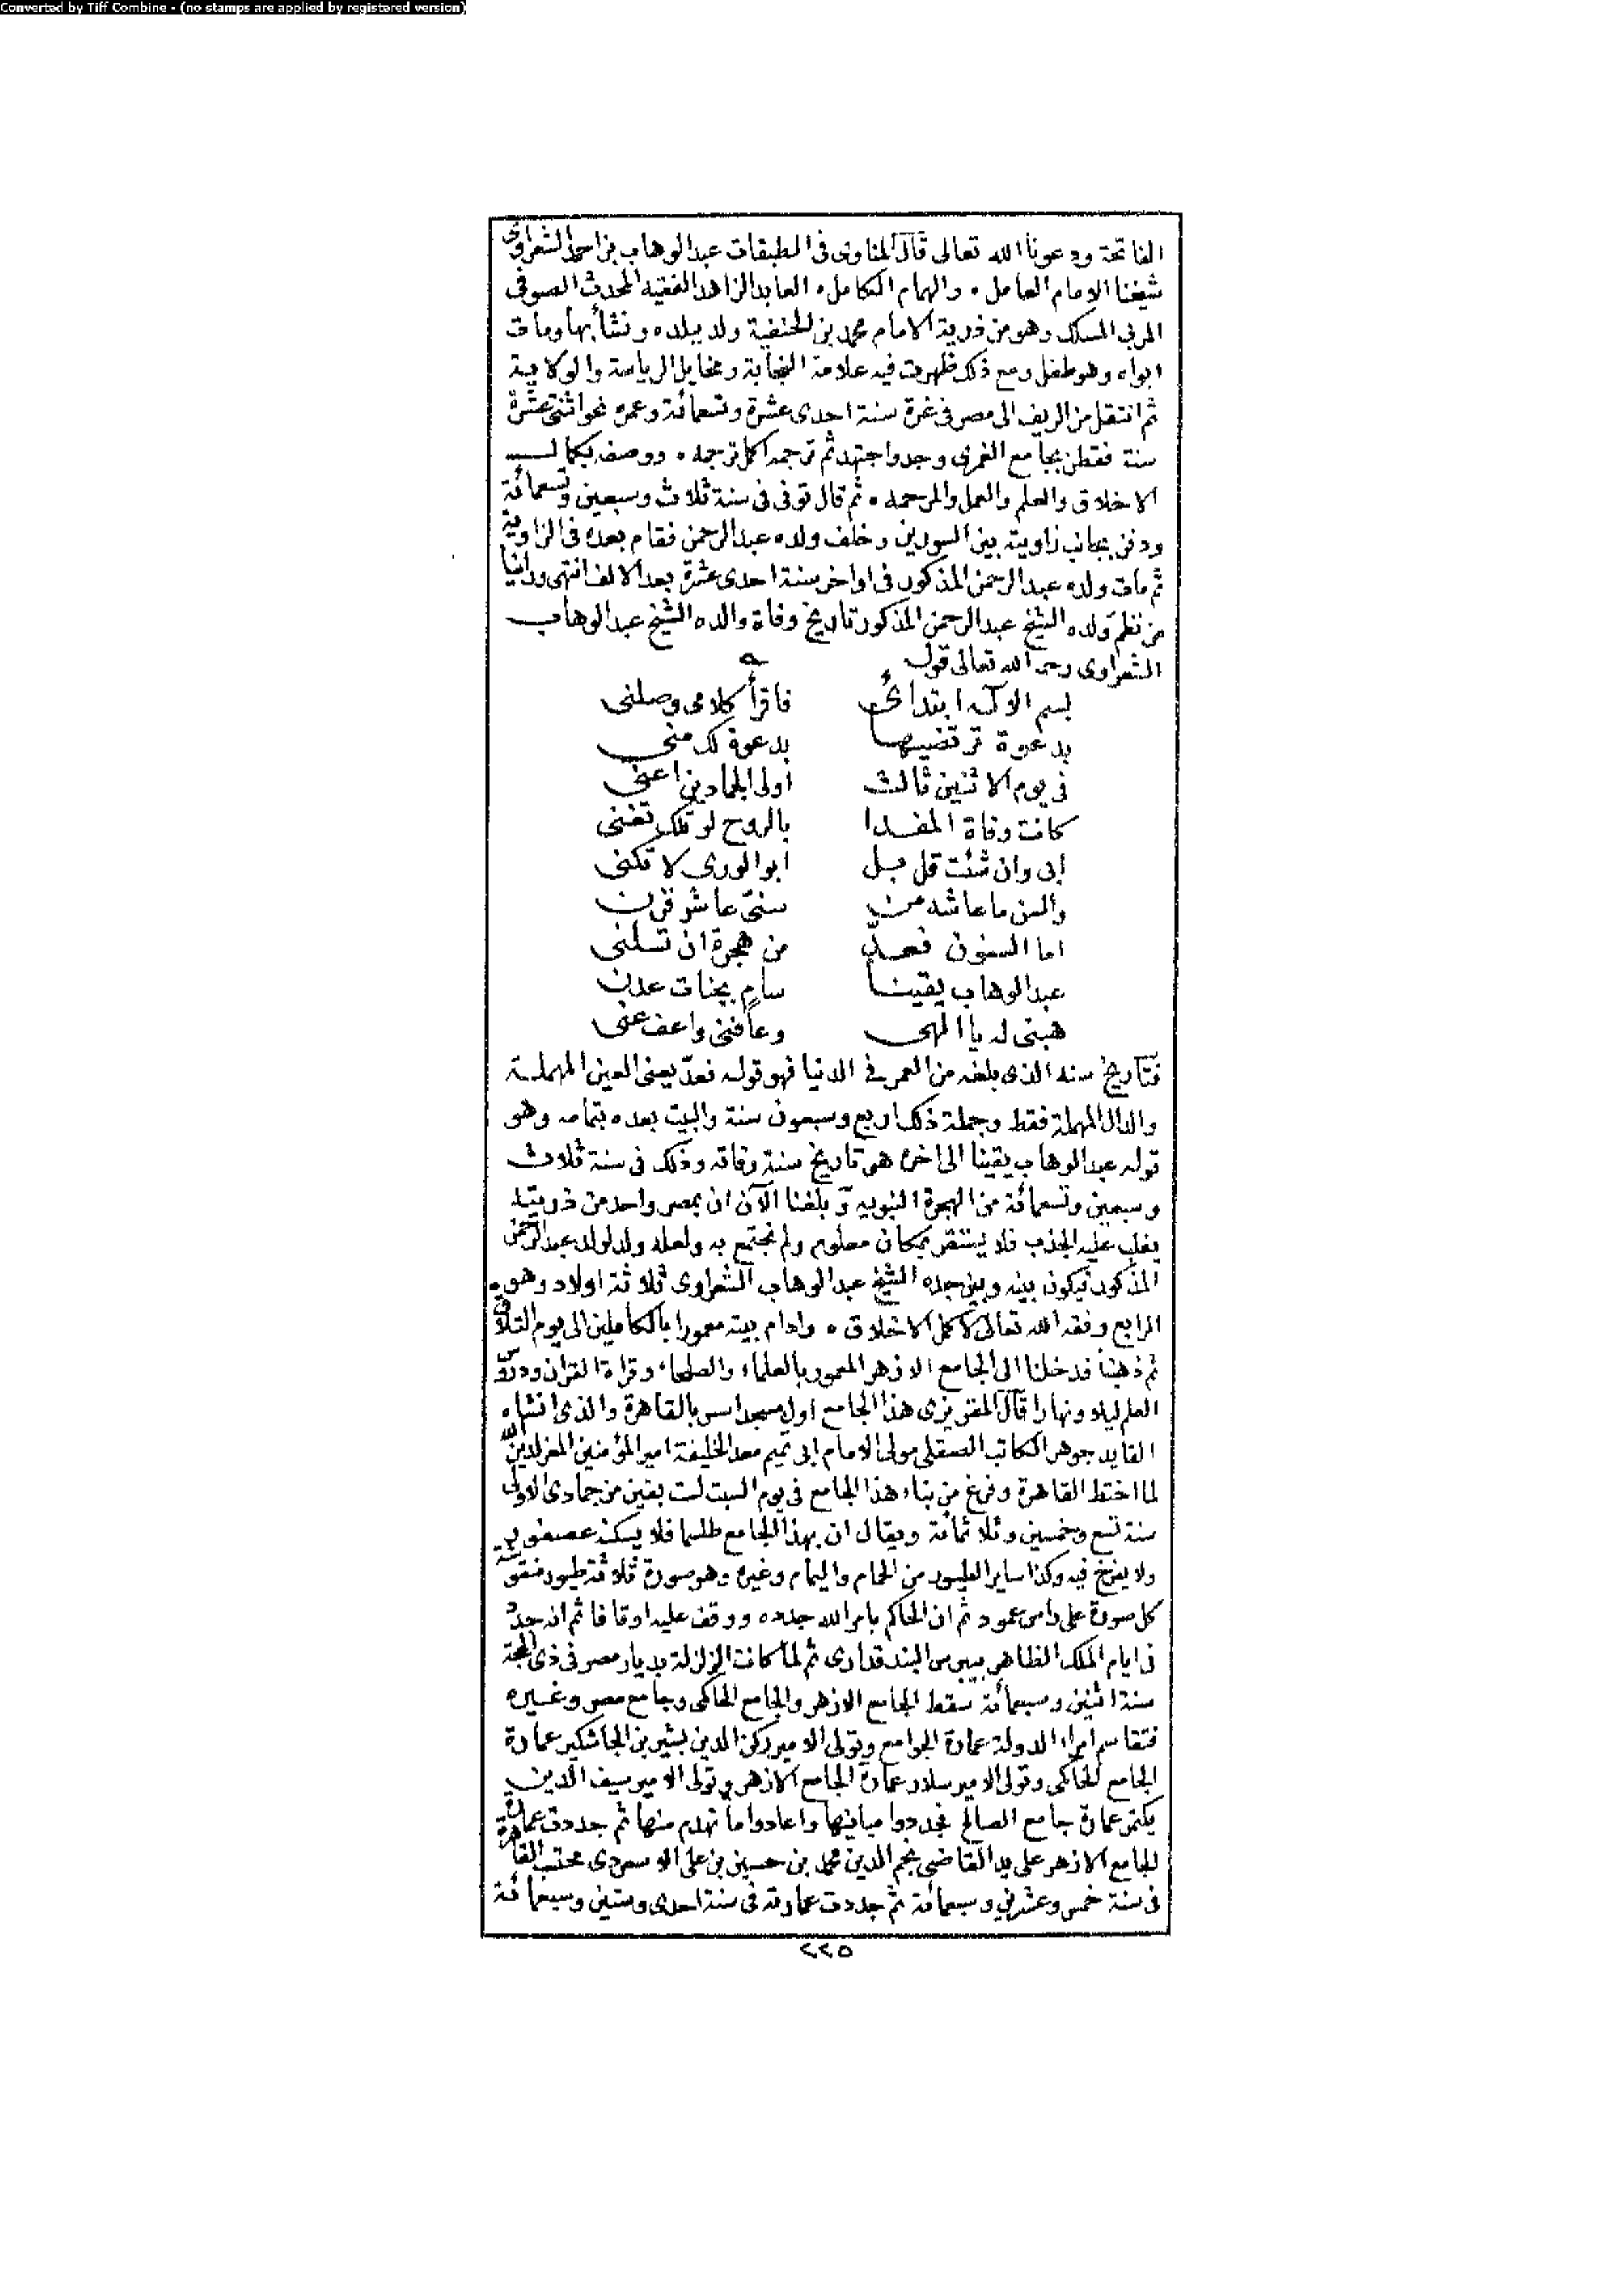 Converted by Tiff Combine - (no stamps are applied by registered version)
الفاتحة ودعونا الله تعالى قال المناوى فى الطبقات عبد الوهاب بن احمد الشعراوى
شيخنا الامام العامل ، والهمام الكامل ، العابد الزاهد الفقيه المحدث الصوفى
المربى المسلك وهو من ذرية الامام محمد بن الحنفية ولد ببلده ونشأ بها ومات
ابواه وهو طفل ومع ذلك ظهرت فيه علامة النجابة ومخايل الرياسة والولاية
ثم انتقل من الريف الى مصر فى غرة سنة احدى عشرة وتسعمائة وعمره نحو اثنتى عشرة
سنة فقطن بجامع الغمرى وجد واجتهد ثم ترجمه اكمل ترجمه ، ووصفه بكمال
الاخلاق والعلم والعمل والمرحمه ، ثم قال توفى فى سنة ثلاث وسبعين وتسعمائة
ودفن بجانب زاويته بين السورين وخلف ولده عبد الرحمن فقام بعده فى الزاوية
ثم مات ولده عبد الرحمن المذكور فى اواخر سنة احدى عشرة بعد الالف انتهى ورأينا
من نظم ولده الشيخ عبد الرحمن المذكور تاريخ وفاة والده الشيخ عبد الوهاب
الشعراوى رحمه الله تعالى قوله
بسم الاله ابتدائى فاقرأ كلامى وصلنى
بدعوة ترتضيها بدعوة لك منى
فى يوم الاثنين ثالث اولى الجمادين اعنى
كانت وفاة المفدا بالروح لو تلك تغنى
ابى وان شئت قل بل ابو الورى لا تكنى
والسن ما عاشه من سنىّ عاشر قرن
اما السنون فعدّ من هجرة ان تسلنى
عبد الوهاب يقينا سامٍ بجنات عدن
هبنى له يا الهى وعافنى واعف عنى
فتاريخ سنه الذى بلغه من العمر فى الدنيا فهو قوله فعدّ يعنى العين المهملة
والدال المهملة فقط وجملة ذلك اربع وسبعون سنة والبيت بعده بتمامه وهو
قوله عبد الوهاب يقينا الى اخره هو تاريخ سنة وفاته وذلك فى سنة ثلاث
وسبعين وتسعمائة من الهجرة النبوية وبلغنا الآن ان بمصر واحد من ذريته
يغلب عليه الجذب فلا يستقر بمكان معلوم ولم نجتمع به ولعله ولد لولد عبد الرحمن
المذكور فيكون بينه وبين جده الشيخ عبد الوهاب الشعراوى ثلاثة اولاد وهو
الرابع وفقه الله تعالى لاكمل الاخلاق ، وادام بيته معمورا بالكاملين الى يوم التلاق
ثم ذهبنا فدخلنا الى الجامع الازهر المعمور بالعلماء والصلحاء وقراءة القران ودروس
العلم ليلا ونهارا قال المقريزى هذا الجامع اول مسجد اسس بالقاهرة والذى انشاه
القايد جوهر الكاتب الصقلى مولى الامام ابى تميم معد الخليفة امير المؤمنين المعز لدين الله
لما اختط القاهرة وفرغ من بناء هذا الجامع فى يوم السبت لست بقين من جمادى الاولى
سنة تسع وخمسين وثلاثمائة ويقال ان بهذا الجامع طلسما فلا يسكنه عصفور
ولا يفرخ فيه وكذا ساير الطيور من الحمام واليمام وغيره وهو صورة ثلاثة طيور منقوشة
كل صورة على راس عمود ثم ان الحاكم بامر الله جدده ووقف عليه اوقافا ثم انه جدد
فى ايام الملك الظاهر بيبرس البندقدارى ثم لما كانت الزلزلة بديار مصر فى ذى الحجة
سنة اثنين وسبعمائة سقط الجامع الازهر والجامع الحاكمى وجامع مصر وغيره
فتقاسم امراء الدولة عمارة الجوامع وتولى الامير ركن الدين بشير بن الجاشنكير عمارة
الجامع الحاكمى وتولى الامير سلار عمارة الجامع الازهر وتولى الامير سيف الدين
بكتمر عمارة جامع الصالح فجددوا مبانيها واعادوا ما تهدم منها ثم جددت عمارة
الجامع الازهر على يد القاضى نجم الدين محمد بن حسين بن على الاسعردى محتسب القاهرة
فى سنة خمس وعشرين وسبعمائة ثم جددت عمارته فى سنة احدى وستين وسبعمائة
٢٢٥